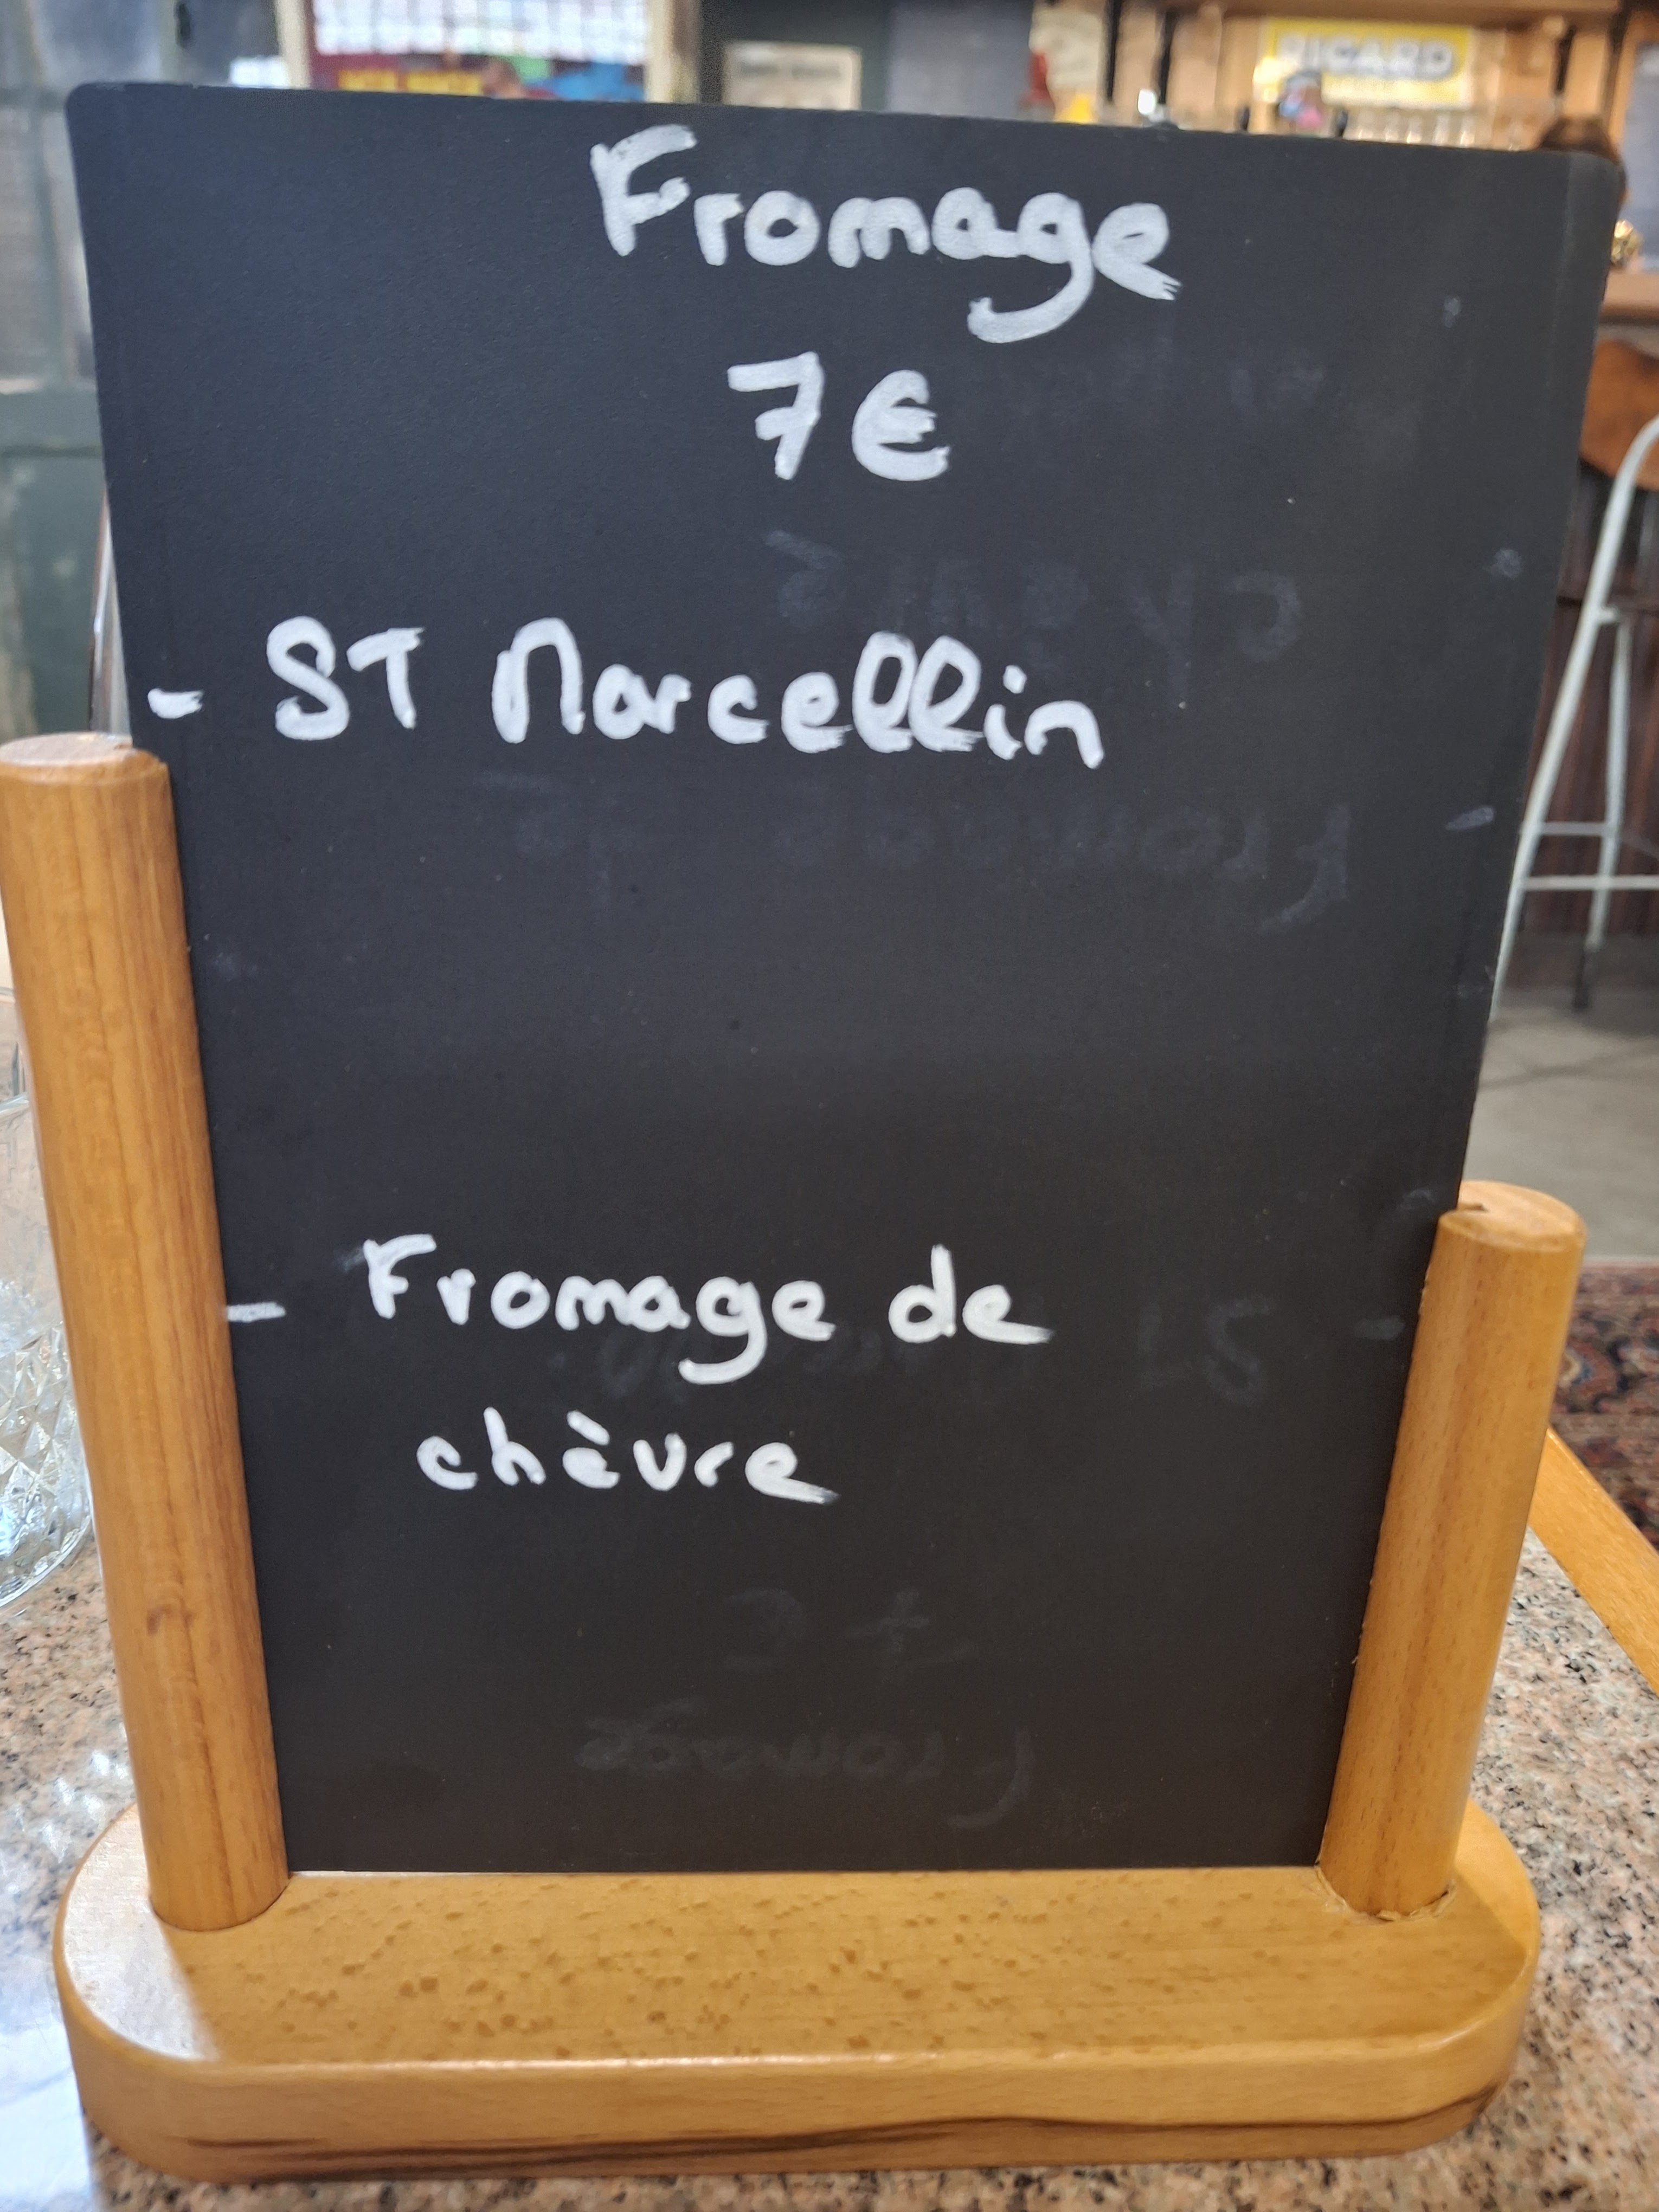 RICARD
Fromage
7€
- ST Marcellin
- Fromage de
chèvre